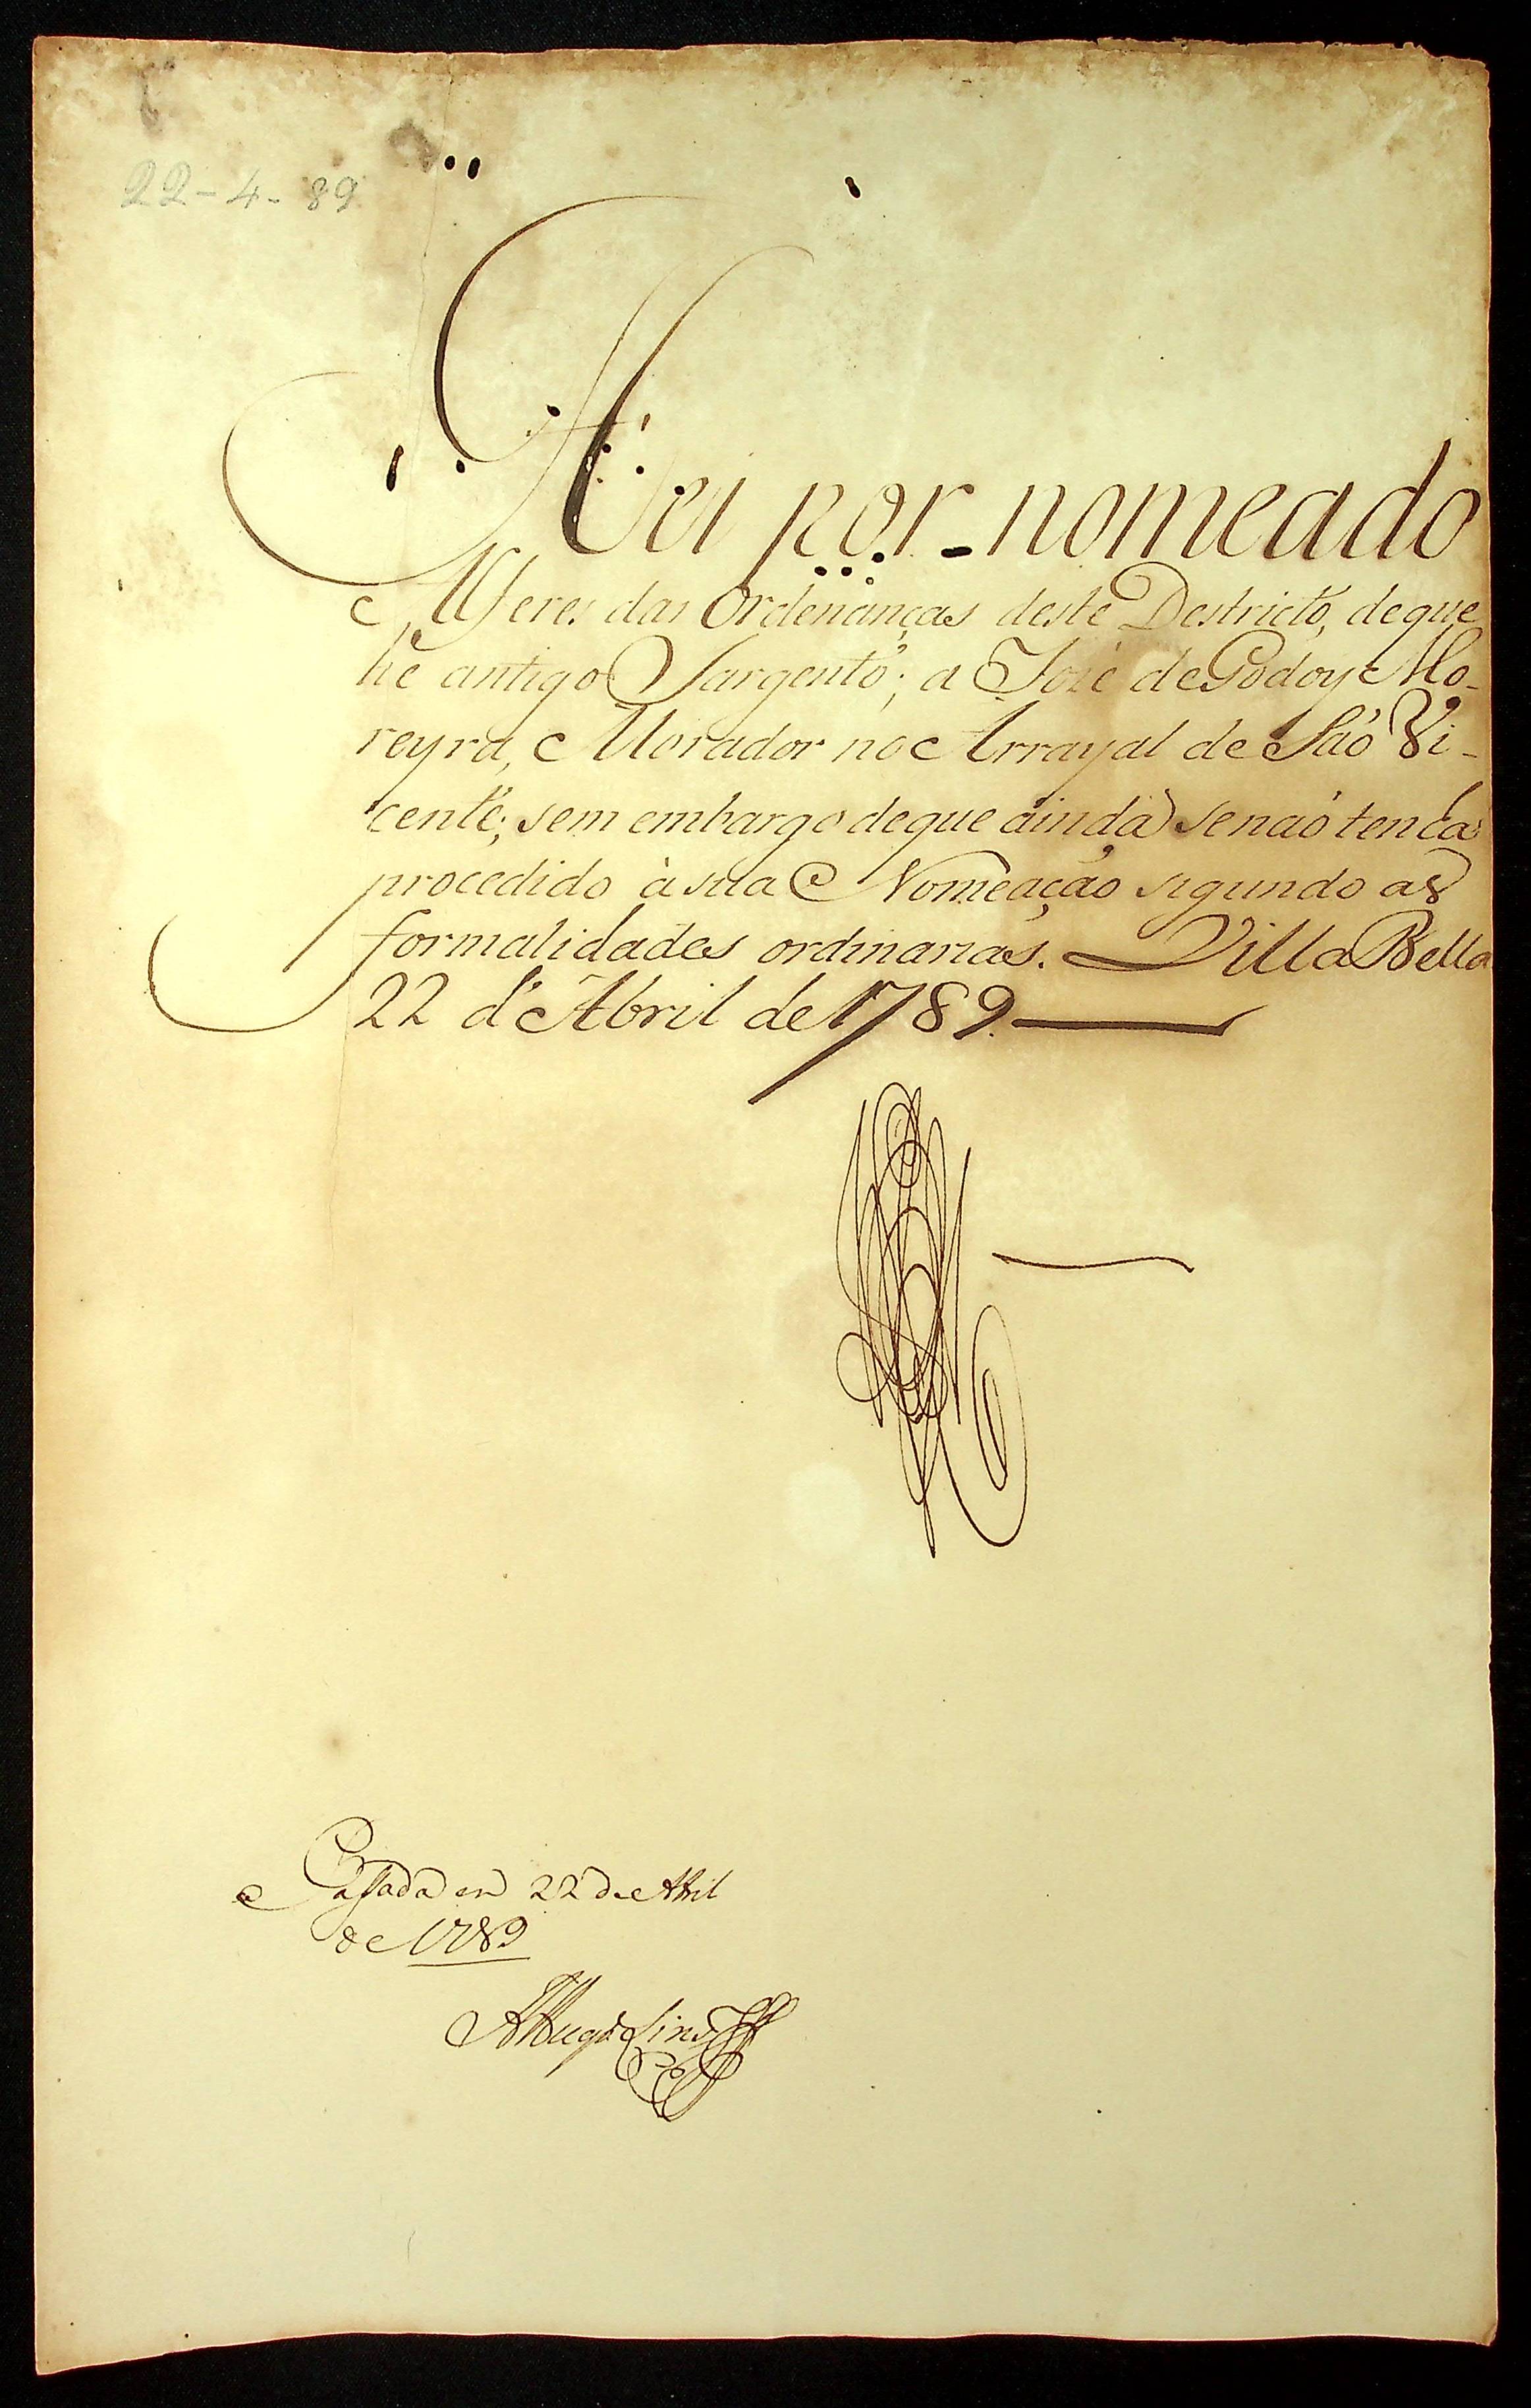 22-4-89
Hei por nomeado
Alferes das Ordenanças deste Destricto, de que
hé antigo Sargento; a José de Godoy Mo-
reyra, Morador no Arrayal de São Vi-
cente; sem embargo de que ainda se naõ tenha
procedido à sua Nomeaçaõ segundo as
formalidades ordinarias. Villa Bella
22 d'Abril de 1789.
Passada em 22 de Abril
de 1789